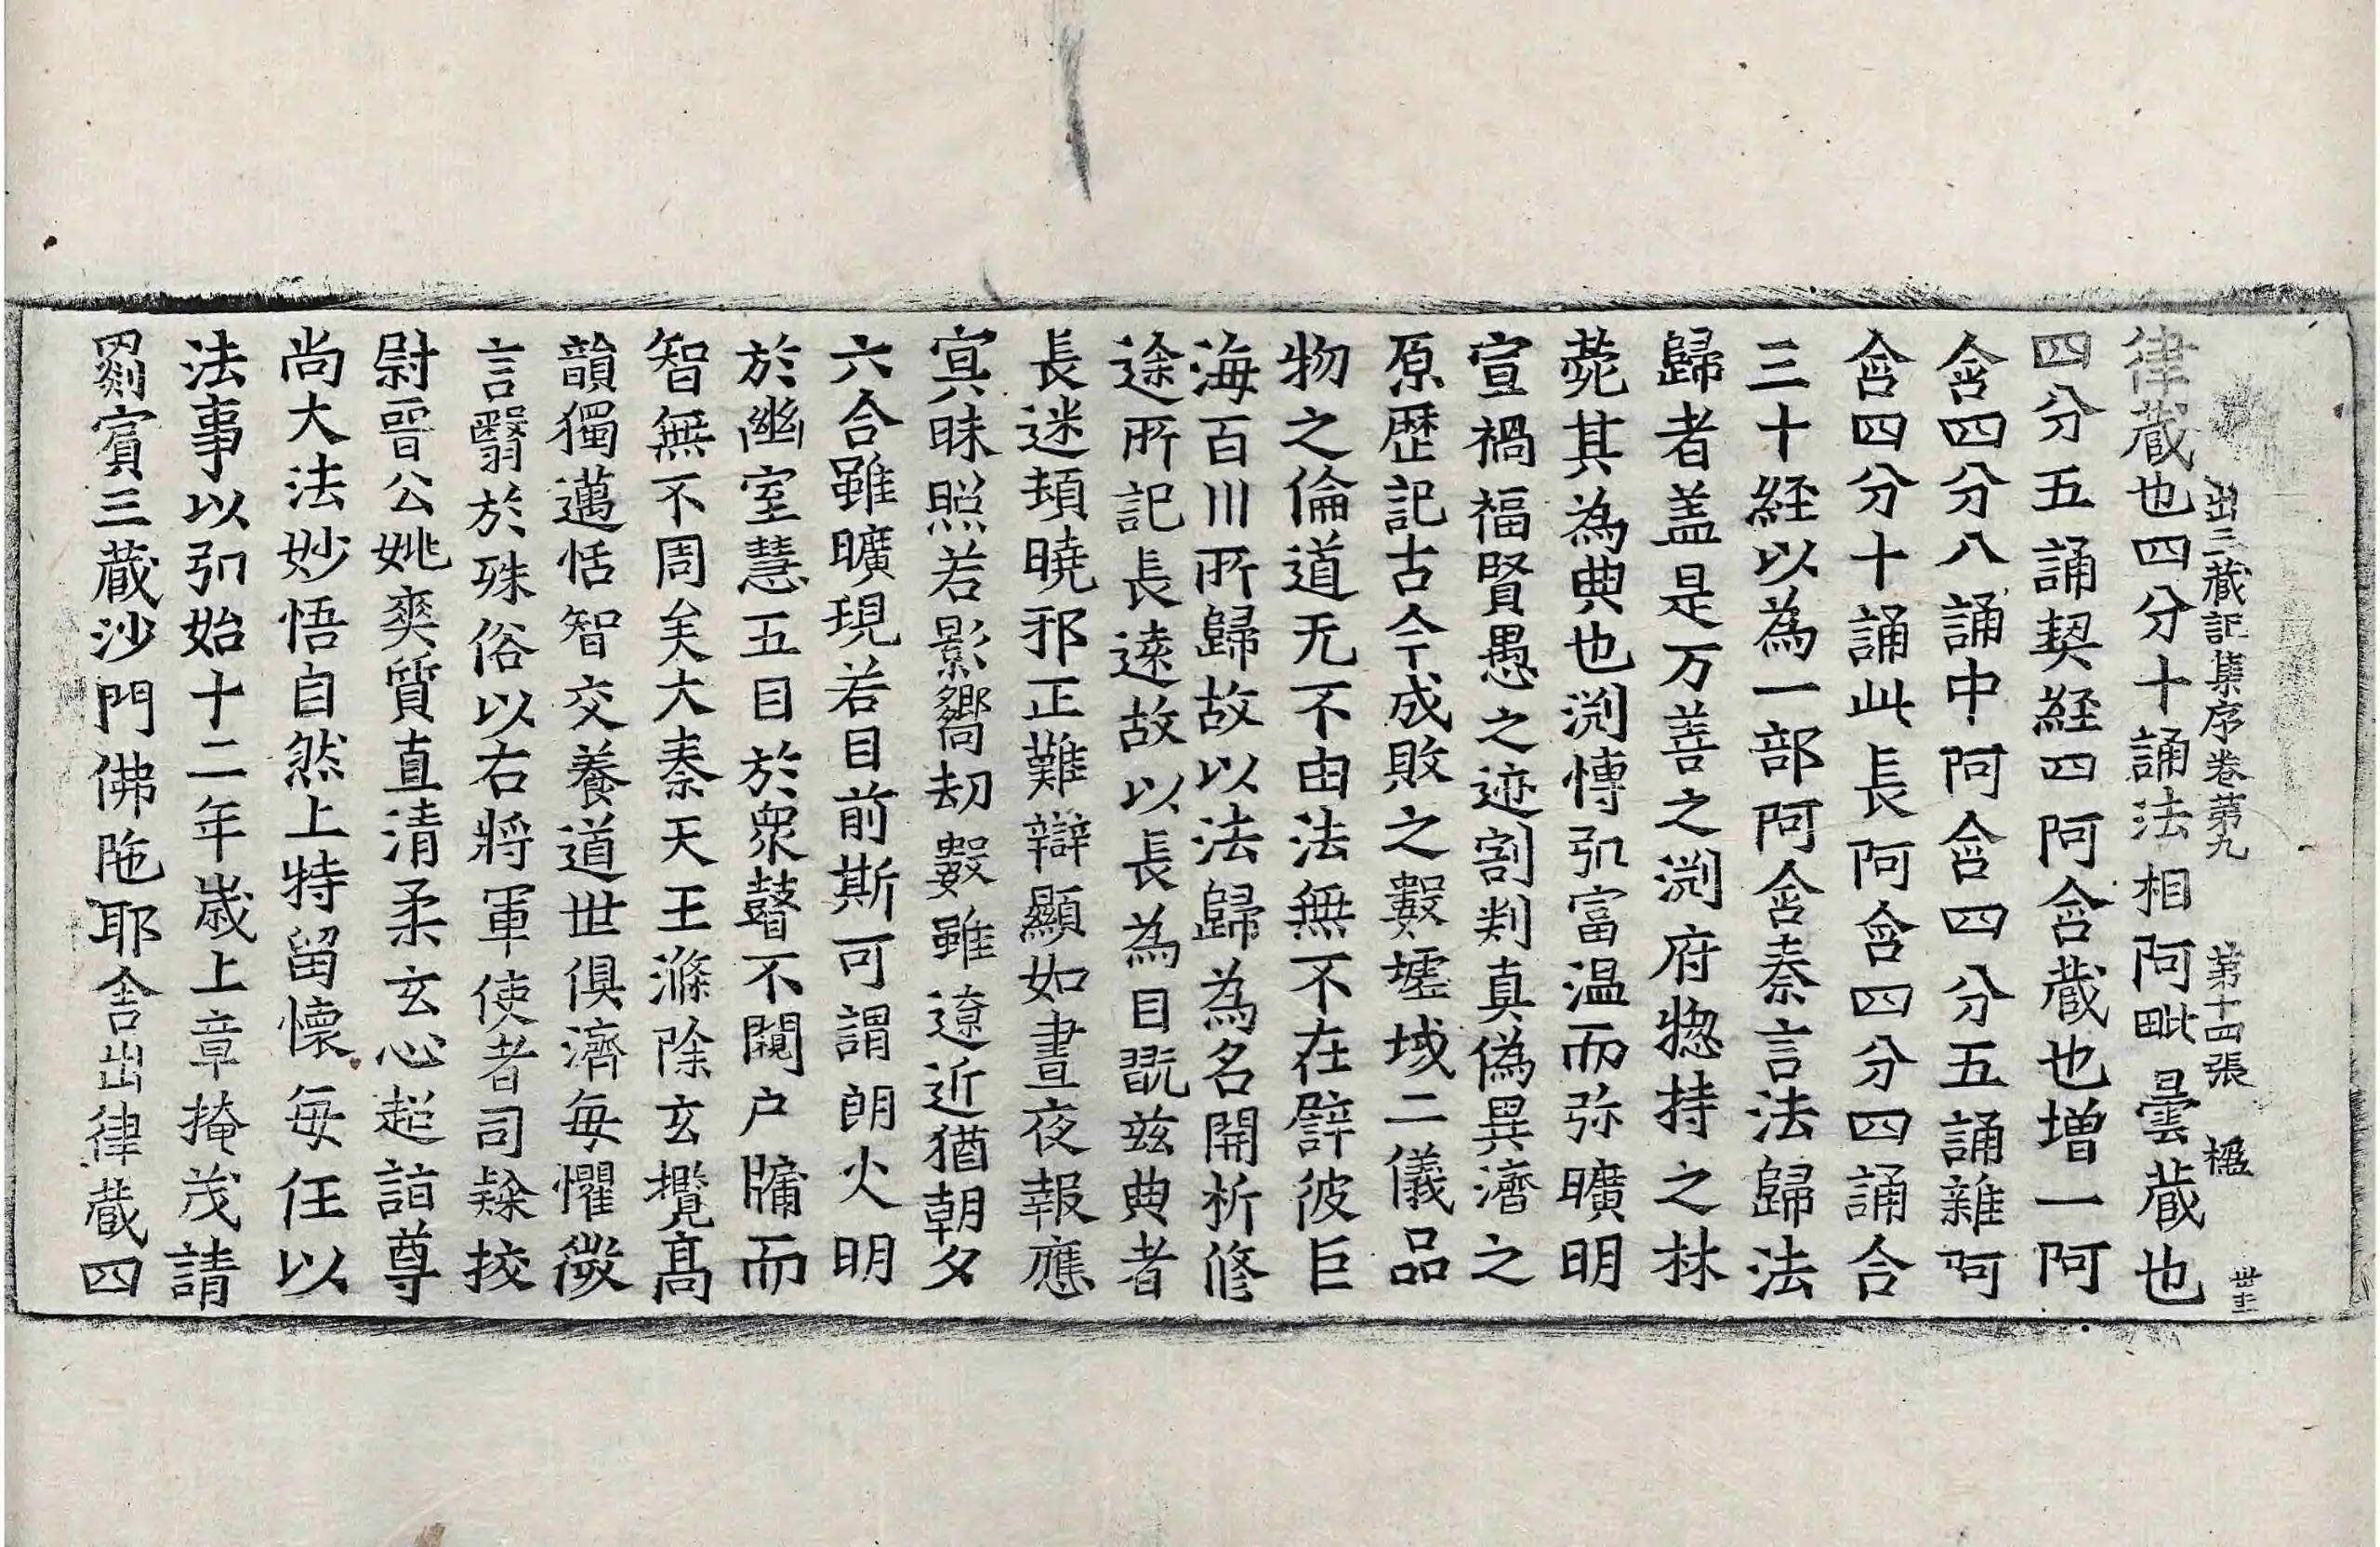 出三蔵記集序卷第九 第十四張 楹
律蔵也四分十誦法相阿毗曇蔵也
四分五誦契経四阿含蔵也增一阿
含四分八誦中阿含四分五誦雜阿
含四分十誦此長阿含四分四誦合
三十経以為一部阿含秦言法歸法
歸者盖是万善之渕府揔持之林
菀其為典也渕慱弘富温而弥曠明
宣禍福賢愚之迹割判真偽異濟之
原歷記古今成敗之數墟域二儀品
物之倫道无不由法無不在譬彼巨
海百川所歸故以法歸為名開析修
途所記長逺故以長為目翫兹典者
長迷頓曉邪正難辯顯如晝夜報應
㝠昧照若影嚮劫數雖遼近猶朝夕
六合雖曠現若目前斯可謂朗火明
於幽室慧五目於衆瞽不闚户牖而
智無不周矣大秦天王滌除玄攬髙
韻獨邁恬智交養道世俱濟每懼微
言翳於殊俗以右將軍使者司隸挍
尉晉公姚爽質直清柔玄心超詣尊
尚大法妙悟自然上特留懷每任以
法事以弘始十二年歲上章掩茂請
罽賓三蔵沙門佛陁耶舍出律蔵四